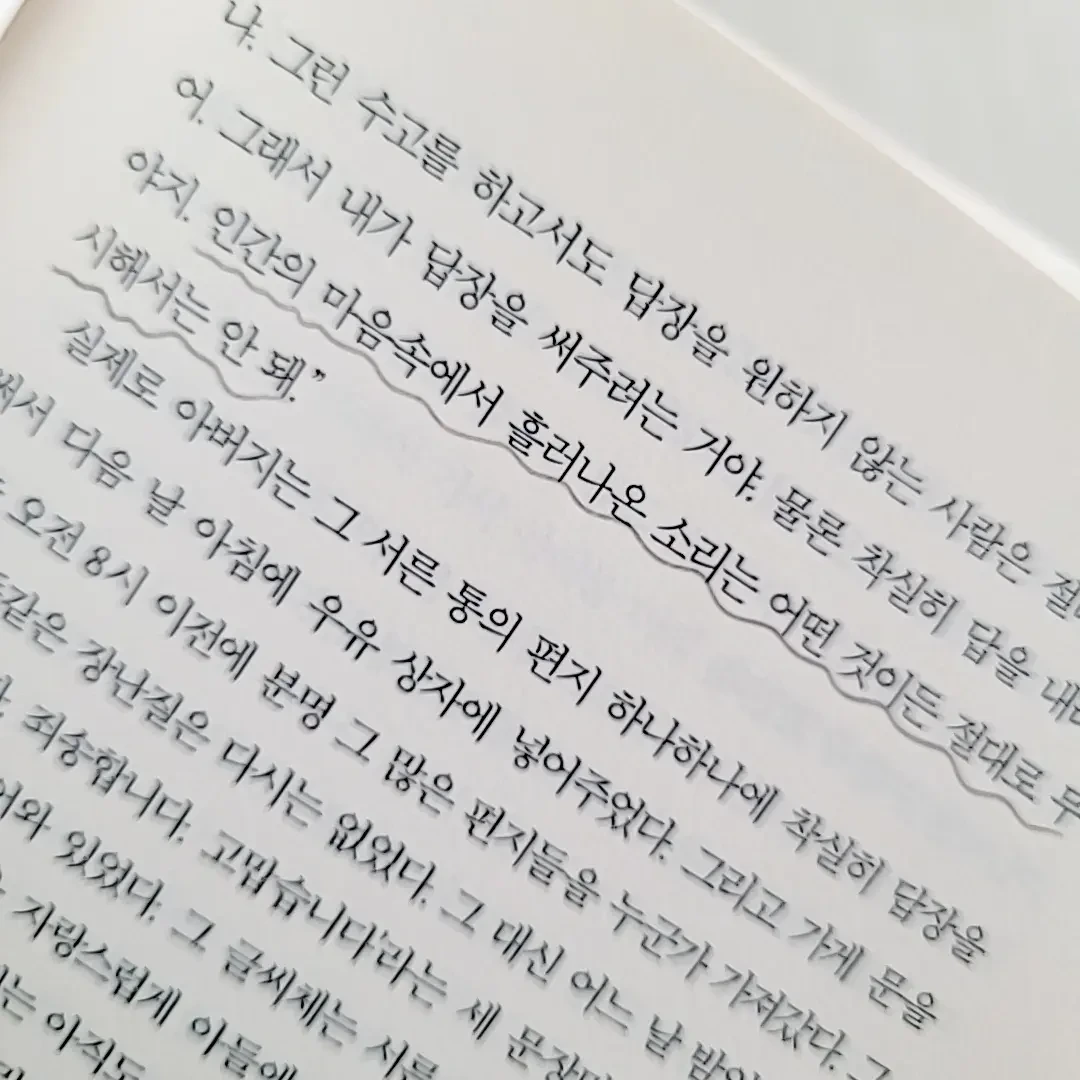 냐. 그런 수고를 하고서도 답장을 원하지 않는 사람은
어. 그래서 내가 답장을 써주려는 거야. 물론 착실히 답을 내
야지. 인간의 마음속에서 흘러나온 소리는 어떤 것이든 절대로 무
시해서는 안 돼.”
실제로 아버지는 그 서른 통의 편지 하나하나에 착실히 답장을
써서 다음 날 아침에 우유 상자에 넣어주었다. 그리고 가게 문을
오전 8시 이전에 분명 그 많은 편지들을 누군가 가져갔다. 그
같은 장난질은 다시는 없었다. 그 대신 어느 날 밤
죄송합니다. 고맙습니다’라는 세 문장
있었다. 그 글씨체는 서른
자랑스럽게 아들에
아직도